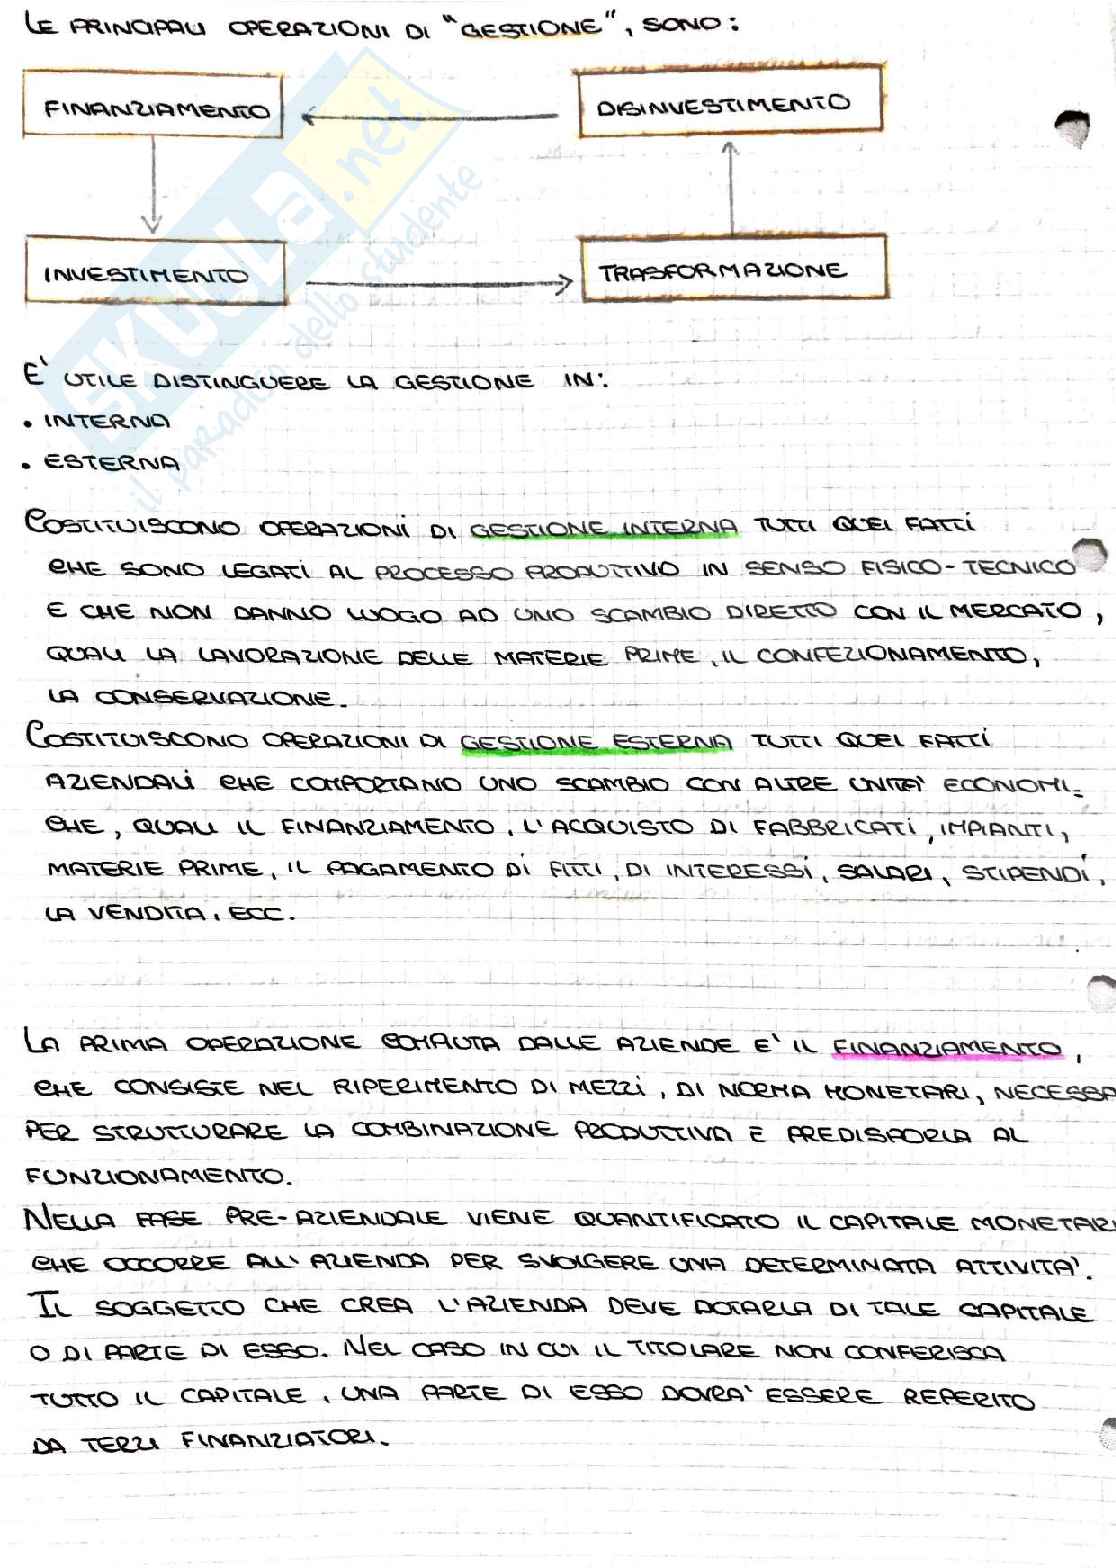 LE PRINCIPALI OPERAZIONI DI "GESTIONE", SONO:
FINANZIAMENTO
DISINVESTIMENTO
INVESTIMENTO
TRASFORMAZIONE
E' UTILE DISTINGUERE LA GESTIONE IN:
• INTERNA
• ESTERNA
COSTITUISCONO OPERAZIONI DI GESTIONE INTERNA TUTTI QUEI FATTI
CHE SONO LEGATI AL PROCESSO PRODUTTIVO IN SENSO FISICO-TECNICO
E CHE NON DANNO LUOGO AD UNO SCAMBIO DIRETTO CON IL MERCATO,
QUALI LA LAVORAZIONE DELLE MATERIE PRIME, IL CONFEZIONAMENTO,
LA CONSERVAZIONE.
COSTITUISCONO OPERAZIONI DI GESTIONE ESTERNA TUTTI QUEI FATTI
AZIENDALI CHE COMPORTANO UNO SCAMBIO CON ALTRE UNITA' ECONOMI-
CHE, QUALI IL FINANZIAMENTO, L'ACQUISTO DI FABBRICATI, IMPIANTI,
MATERIE PRIME, IL PAGAMENTO DI FITTI, DI INTERESSI, SALARI, STIPENDI,
LA VENDITA, ECC.
LA PRIMA OPERAZIONE COMPIUTA DALLE AZIENDE E' IL FINANZIAMENTO,
CHE CONSISTE NEL RIPERIMENTO DI MEZZI, DI NORMA MONETARI, NECESSA
PER STRUTTURARE LA COMBINAZIONE PRODUTTIVA E PREDISPORLA AL
FUNZIONAMENTO.
NELLA FASE PRE-AZIENDALE VIENE QUANTIFICATO IL CAPITALE MONETARI
CHE OCCORRE ALL'AZIENDA PER SVOLGERE UNA DETERMINATA ATTIVITA'.
IL SOGGETTO CHE CREA L'AZIENDA DEVE DOTARLA DI TALE CAPITALE
O DI PARTE DI ESSO. NEL CASO IN CUI IL TITOLARE NON CONFERISCA
TUTTO IL CAPITALE, UNA PARTE DI ESSO DOVRA' ESSERE REPERITO
DA TERZI FINANZIATORI.
SKUOLA.net
il paradiso dello studente